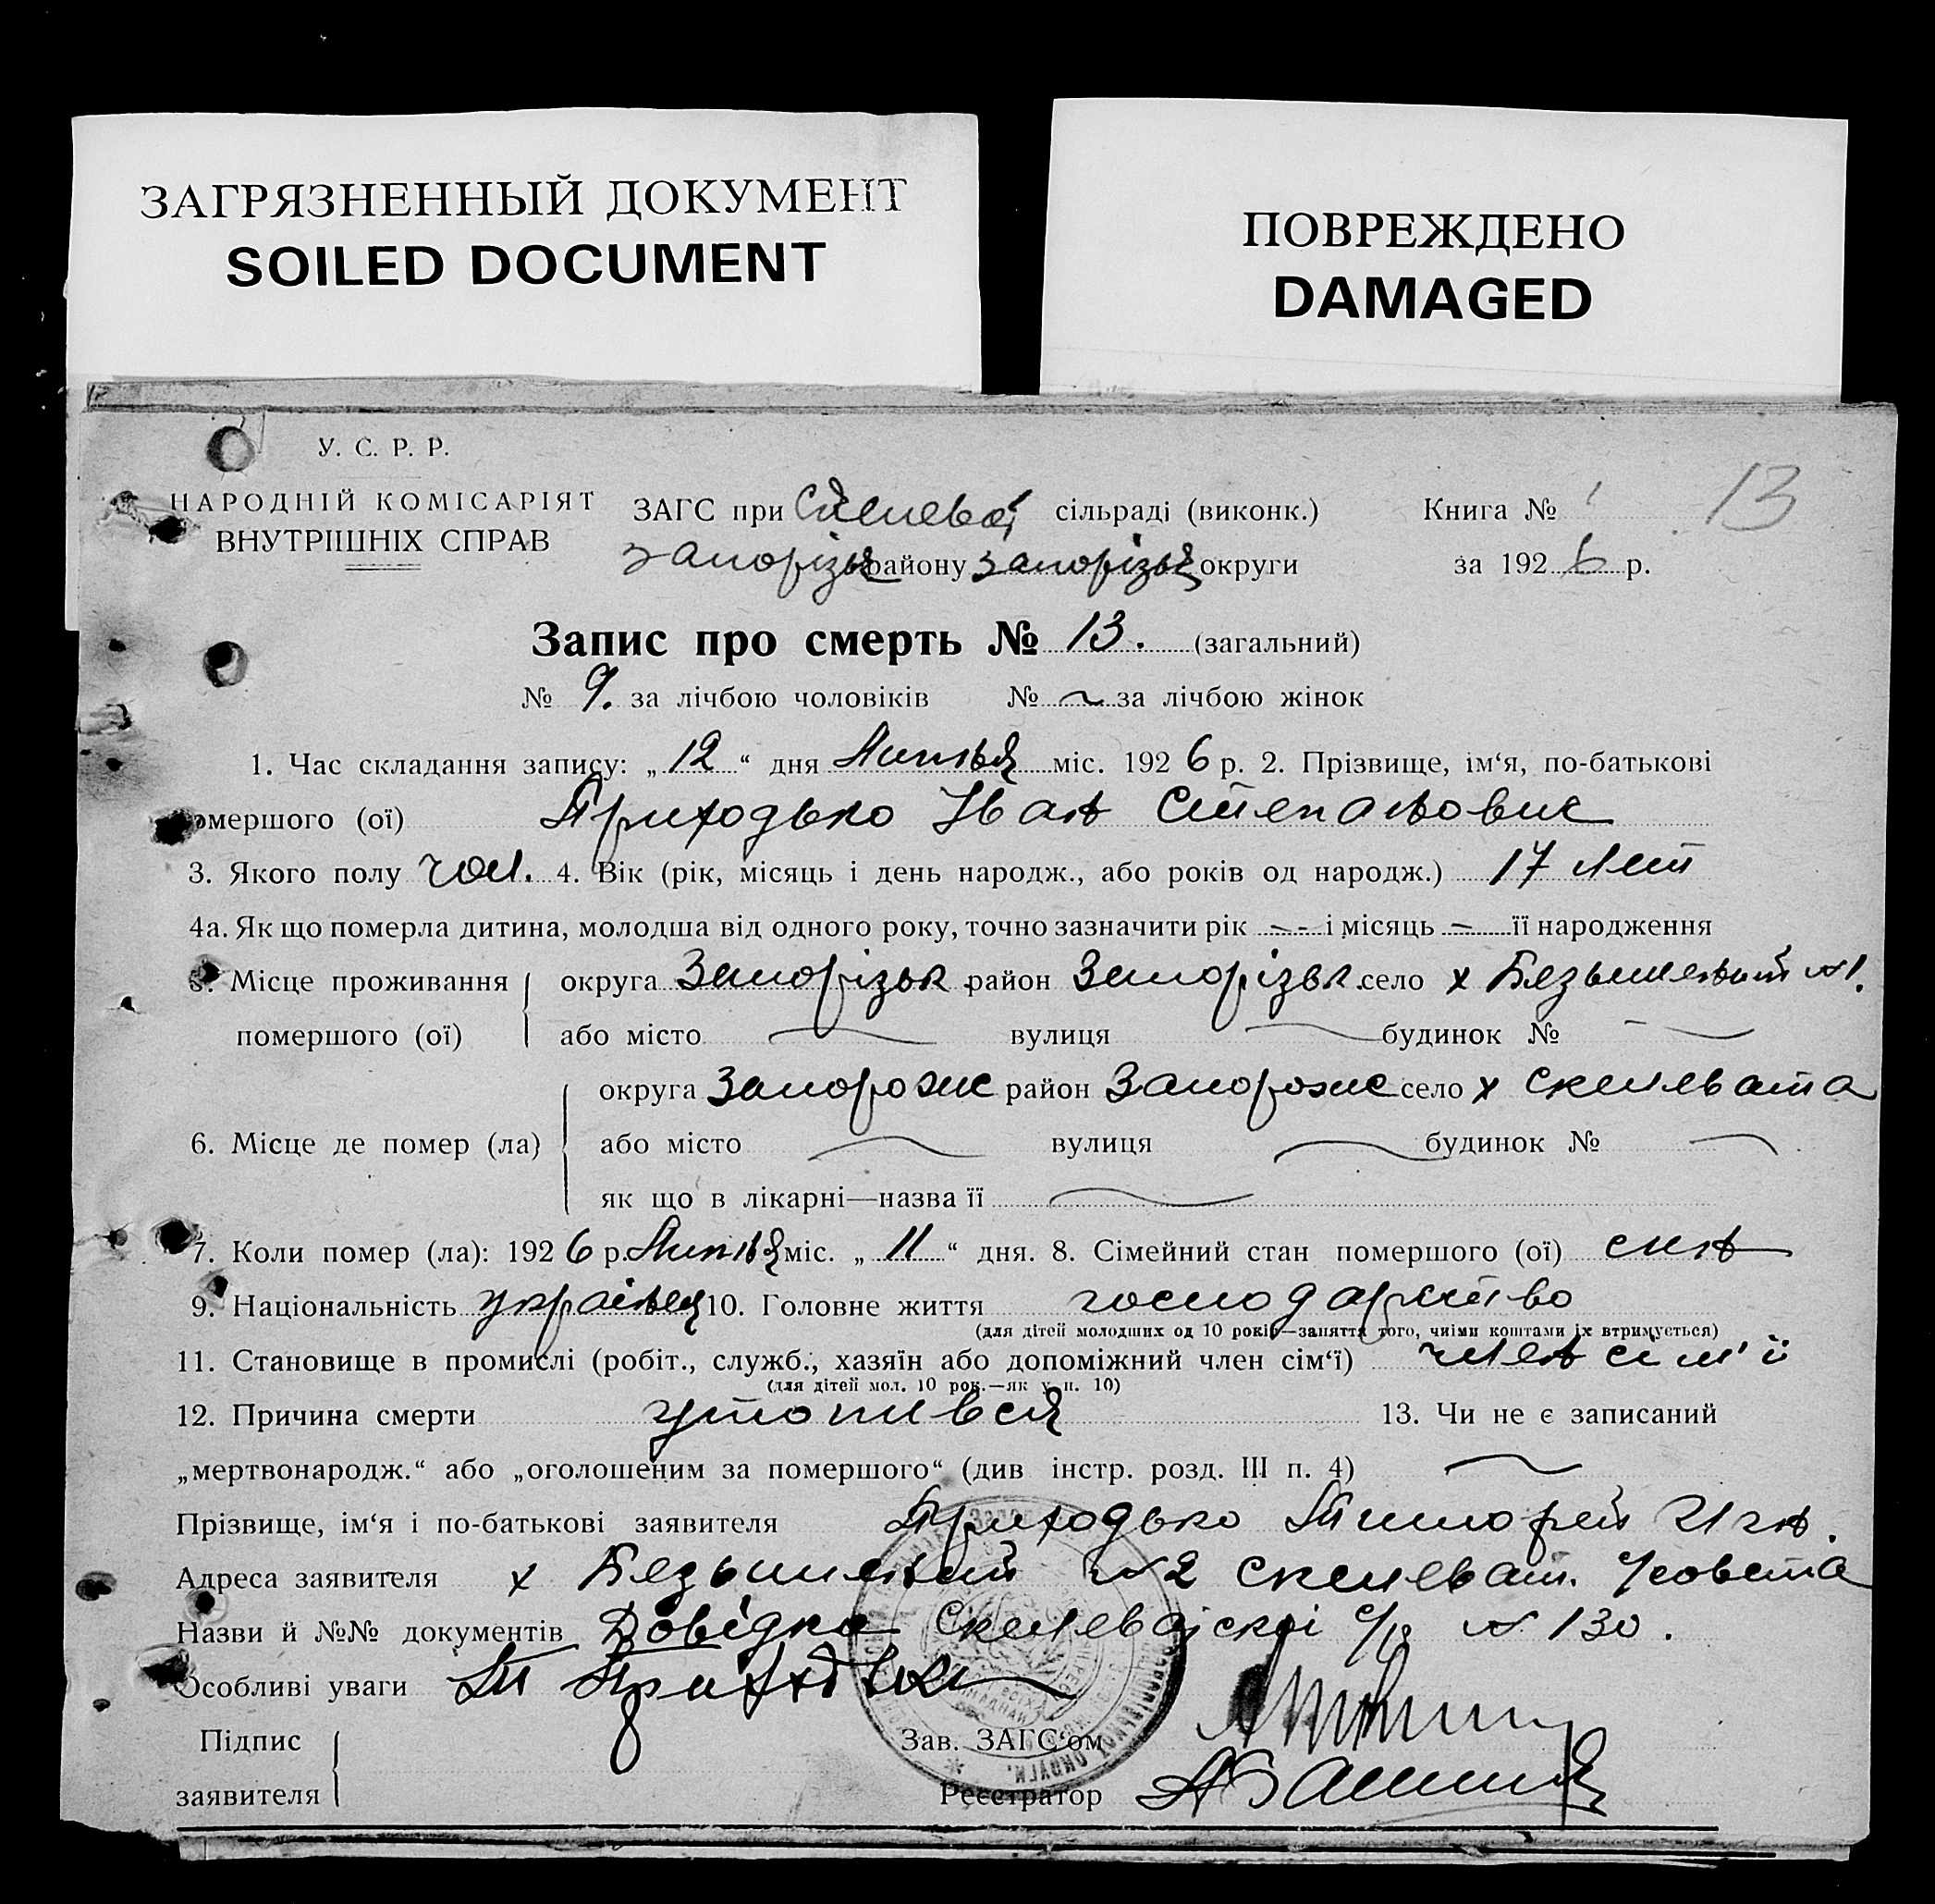 ЗАГРЯЗНЕННЫЙ ДОКУМЕНТ
SOILED DOCUMENT
ПОВРЕЖДЕНО
DAMAGED
У. С. Р. Р.
НАРОДНІЙ КОМІСАРІЯТ
ВНУТРІШНІХ СПРАВ
ЗАГС при сільраді (виконк.)
Книга № 13
району округи за 1926 р.
Запис про смерть № 13. (загальний)
№ 9. за лічбою чоловіків № за лічбою жінок
1. Час складання запису: „12“ дня Липня міс. 1926 р. 2. Прізвище, ім‘я, по-батькові
помершого (ої) Приходько Іван Степанович
3. Якого полу чол. 4. Вік (рік, місяць і день народж., або років од народж.) 17 лет
4а. Як що померла дитина, молодша від одного року, точно зазначити рік -- і місяць — її народження
5. Місце проживання округа Запорізьк район Запорізьк село х Безымений №1.
помершого (ої) або місто вулиця будинок №
округа Запорожс район Запорожс село х Скелевата
6. Місце де помер (ла) або місто вулиця будинок №
як що в лікарні—назва її
7. Коли помер (ла): 1926 р. Липня міс. „11“ дня. 8. Сімейний стан помершого (ої) син
9. Національність 10. Головне життя господарство
(для дітей молодших од 10 років—заняття того, чиїми коштами їх втримується)
11. Становище в промислі (робіт., служб., хазяїн або допоміжний член сім‘ї) член сім'ї
(для дітей мол. 10 рок.—як у п. 10)
12. Причина смерти утопився 13. Чи не є записаний
„мертвонародж.“ або „оголошеним за помершого“ (див інстр. розд. III п. 4)
Прізвище, ім‘я і по-батькові заявителя Приходько Тимофей Игн.
Адреса заявителя х Безыменый №2 Скелеват.
Назви й №№ документів Довідка с/р № 130.
Особливі уваги
Підпис
заявителя
Зав. ЗАГС‘ом
Реєстратор